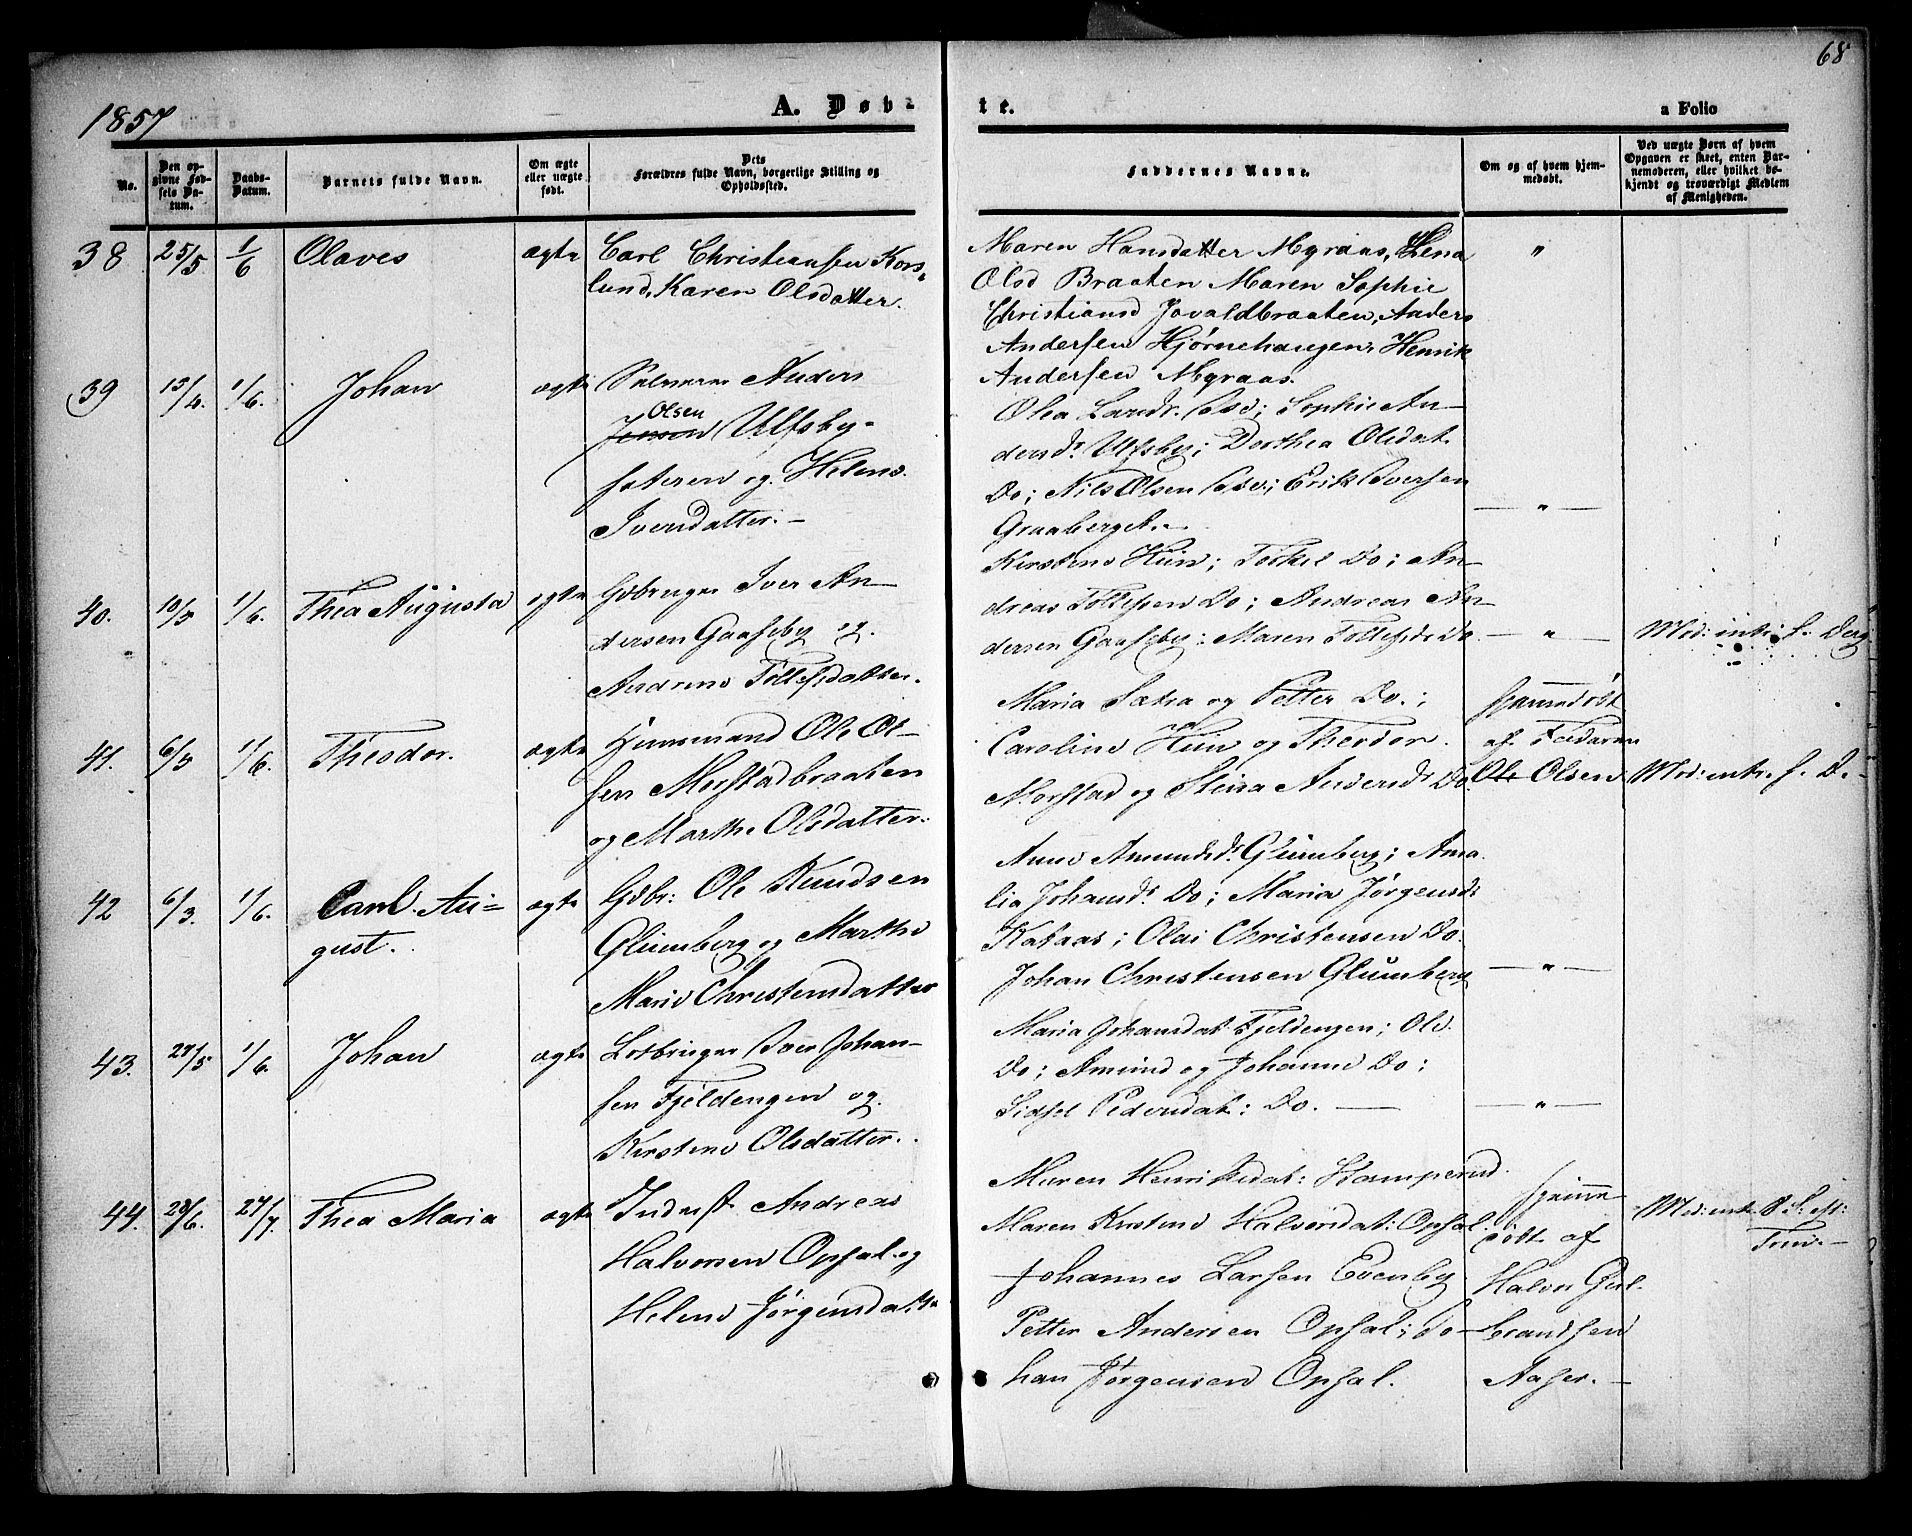 68
1857
A. Døb-
te.
a Folio
No.
Den op-
givne Fød-
sels Da-
tum.
Daabs-
Datum.
Barnets fulde Navn.
Om ægte
eller uægte
født.
Dets
Forældres fulde Navn, borgerlige Stilling og
Opholdssted.
Faddernes Navne.
Om og af hvem hjem-
medøbt.
Ved uægte Børn af hvem
Opgaven er skeet, enten Bar-
nemoderen, eller hvilket be-
kjendt og troværdigt Medlem
af Menigheden.
38 25/5 1/6 Olaves ægte
Carl Christiansen Kors-
lund, Karen Olsdatter.
Maren Hansdatter Mgraas, Lena
Olsd Braaten Maren Sophie
Christiansd Jovaldbraaten, Anders
Andersen Hjørnehaugen, Henrik
Andersen Mgraas.
"
39 13/4. 1/6. Johan ægte
Anders
Olsen
Jensen Ulfsby-
sæteren og Helene
Iversdatter.-
Olea Larsdr. Sophie An-
dersdr. Ulfsby; Dorthea Olsdat.
Do; Nils Olsen Erik Iversen
Graaberget.
— " —
40. 10/3 1/6. Thea Augusta ægte
Gdbruger Iver An-
dersen Gaaseby og
Andrine Tollefsdatter.
Kirstine Huin; Torkel Do; An-
dreas Tollefsen Do; Andreas An-
dersen Gaaseby; Maren Tollefsdr Do
— " —
Mod: intr. f.
41. 6/3 1/6. Theodor. ægte
Huusmand Ole Ol-
sen Morstadbraaten
og Marthe Olsdatter.
Maria Sætra og Petter Do.;
Caroline Huin og Theodor
Morstad og Stina Andersdr Do.
hjemmedøbt
af Faderen
Ole Olsen
Mod: intr. f. D.-
42 6/3. 1/6. Carl Au-
gust. ægte
Gdbr: Ole Knudsen
Glumberg og Marthe
Marie Christensdatter
Anne Amundsdr. Glumberg; Ama-
lia Johansdr. Do; Maria Jørgensdr
Kataas; Olai Christensen Do.
Johan Christensen Glumberg
— " —
43. 27/5 1/6. Johan ægte
Lodbruger Iver Johan-
sen Fjeldengen og
Kirstine Olsdatter.
Maria Johansdat. Fjeldengen; Ole
Do; Amund og Johanne Do;
Sidsel Pedersdat: Do. —
— " —
44. 28/6. 27/7. Thea Maria ægte
Inderst Andreas
Halvorsen Opsal og
Helene Jørgensdatter
Maren Henriksdat: Stamperud.
Maren Kirstine Halvorsdat: Opsal.
Johannes Larsen Evenby
Petter Andersen Opsal; Jo-
han Jørgensen Opsal.
hjemme-
døbt af
Halvor Gul-
brandsen
Aaser. —
Mod: intr.